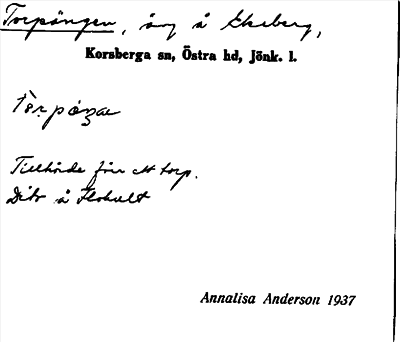 Torpängen, äng å Ekeberg,
Korsberga sn, Östra hd, Jönk. l.
Tillhörde förr ett torp.
Dito å Flohult
Annalisa Anderson 1937